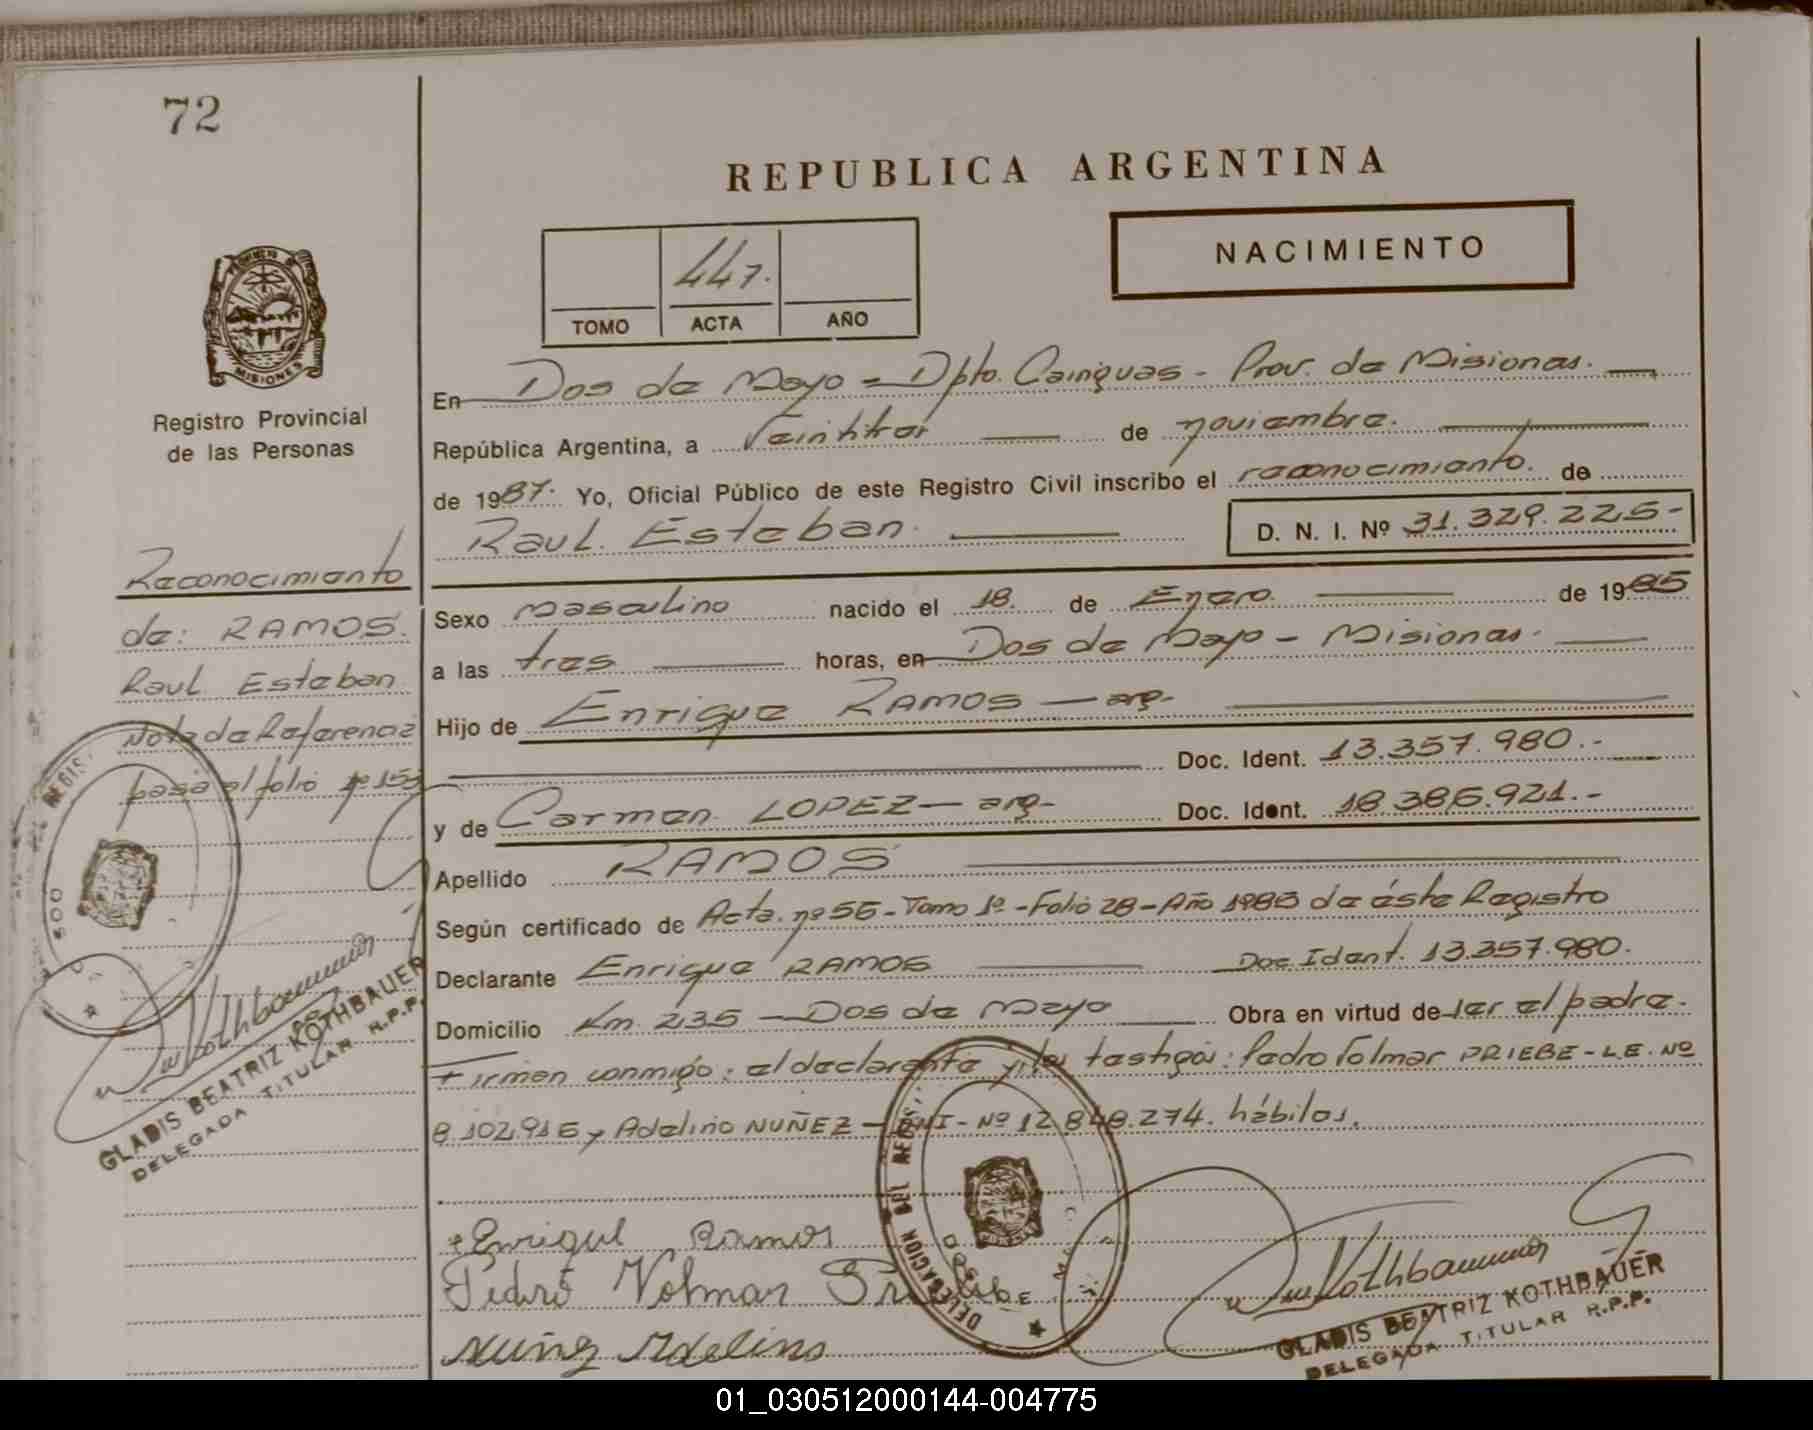 72
REPUBLICA ARGENTINA
NACIMIENTO
447.
TOMO ACTA AÑO
MISIONES
Registro Provincial
de las Personas
En Dos de Mayo = Dpto. Cainguas - Prov. de Misiones.
República Argentina, a Veintitres de noviembre.
de 1987. Yo, Oficial Público de este Registro Civil inscribo el reconocimiento. de
Raul Esteban. D. N. I. Nº 31.329.225-
Reconocimiento
de: RAMOS.
Raul Esteban
Nota de Referencia
pasa al folio nº 153
Sexo masculino nacido el 18. de Enero de 1985
a las tres horas, en Dos de Mayo - Misiones.
Hijo de Enrique RAMOS — arg.
Doc. Ident. 13.357.980.-
y de Carmen LOPEZ — arg- Doc. Ident. 18.386.921.-
Apellido RAMOS
Según certificado de Acta. nº 56 - Tomo 1º - Folio 28 - Año de éste Registro
Declarante Enrique RAMOS Doc Ident. 13.357.980.
Domicilio Km. 235 — Dos de Mayo Obra en virtud de ser el padre.
Firman conmigo: el declarante y los testigos: Pedro Volmar PRIEBE - L.E. Nº
8.102.916 y Adelino NUÑEZ - DNI - Nº 12.848.274. hábiles.
Enrique Ramos
Pedro Volmar Priebe
Nuñez Adelino
DELEGACION DEL REGIS.
DOS DE
GLADIS BEATRIZ KOTHBAUER
DELEGADA TITULAR R.P.P.
GLADIS BEATRIZ KOTHBAUER
DELEGADA TITULAR R.P.P.
01_030512000144-004775